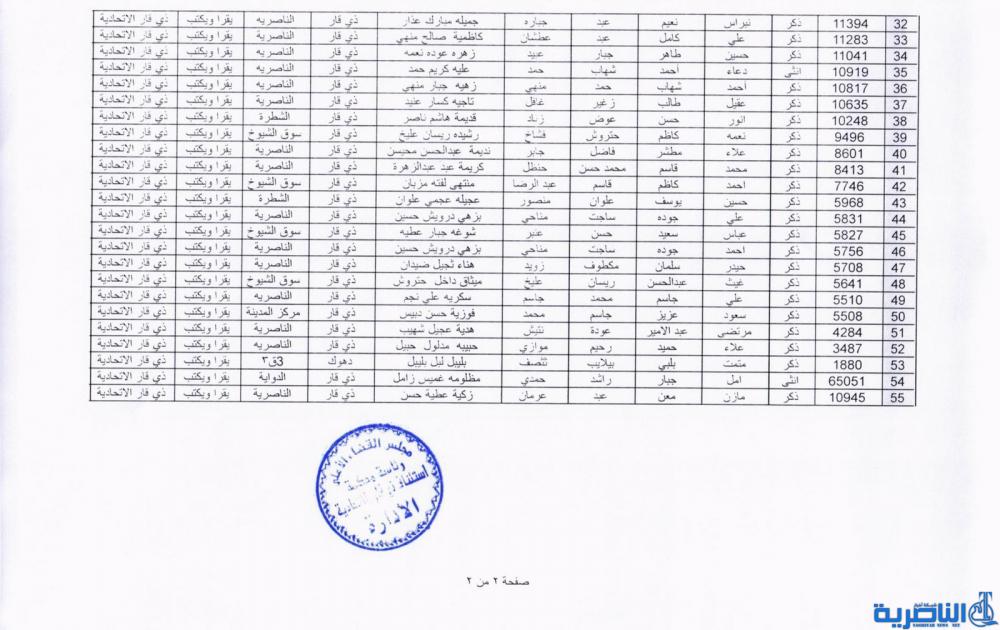 32 11394 ذكر نبراس نعيم عبد جباره جميله مبارك عذار ذي قار الناصريه يقرا ويكتب ذي قار الاتحادية
33 11283 ذكر علي كامل عبد عطشان كاظمية صالح منهي ذي قار الناصرية يقرا ويكتب ذي قار الاتحادية
34 11041 ذكر حسين طاهر جبار عبيد زهره عوده نعمه ذي قار الناصريه يقرا ويكتب ذي قار الاتحادية
35 10919 انثى دعاء احمد شهاب حمد عليه كريم حمد ذي قار الناصريه يقرا ويكتب ذي قار الاتحادية
36 10817 ذكر أحمد شهاب حمد منهي زهيه جبار منهي ذي قار الناصرية يقرا ويكتب ذي قار الاتحادية
37 10635 ذكر عقيل طالب زغير غافل تاجيه كسار عنيد ذي قار الناصرية يقرا ويكتب ذي قار الاتحادية
38 10248 ذكر انور حسن عوض زياد قديمة هاشم ناصر ذي قار الشطرة يقرا ويكتب ذي قار الاتحادية
39 9496 ذكر نعمه كاظم حتروش فشاخ رشيده ريسان عليخ ذي قار سوق الشيوخ يقرا ويكتب ذي قار الاتحادية
40 8601 ذكر علاء مطشر فاضل جابر نديمة عبدالحسن محيسن ذي قار الناصرية يقرا ويكتب ذي قار الاتحادية
41 8413 ذكر محمد قاسم محمد حسن حنظل كريمة عبد عبدالزهرة ذي قار الناصرية يقرا ويكتب ذي قار الاتحادية
42 7746 ذكر احمد كاظم قاسم عبد الرضا منتهى لفته مزبان ذي قار سوق الشيوخ يقرا ويكتب ذي قار الاتحادية
43 5968 ذكر حسين يوسف علوان منصور عجيله عجمي علوان ذي قار الشطرة يقرا ويكتب ذي قار الاتحادية
44 5831 ذكر علي جوده ساجت مناحي بزهي درويش حسين ذي قار الناصرية يقرا ويكتب ذي قار الاتحادية
45 5827 ذكر عباس سعيد حسن عبر شوغه جبار عطيه ذي قار سوق الشيوخ يقرا ويكتب ذي قار الاتحادية
46 5756 ذكر احمد جوده ساجت مناحي بزهي درويش حسين ذي قار الناصرية يقرا ويكتب ذي قار الاتحادية
47 5708 ذكر حيدر سلمان مكطوف زويد هناء ثجيل ضيدان ذي قار الناصرية يقرا ويكتب ذي قار الاتحادية
48 5641 ذكر غيث عبدالحسن ريسان عليخ ميثاق داخل حتروش ذي قار سوق الشيوخ يقرا ويكتب ذي قار الاتحادية
49 5510 ذكر علي جاسم محمد جاسم سكريه علي نجم ذي قار الناصريه يقرا ويكتب ذي قار الاتحادية
50 5508 ذكر سعود عزيز جاسم محمد فوزية حسن دبيس ذي قار مركز المدينة يقرا ويكتب ذي قار الاتحادية
51 4284 ذكر مرتضى عبد الامير عودة نتيش هدية عجيل شهيب ذي قار الناصرية يقرا ويكتب ذي قار الاتحادية
52 3487 ذكر علاء حميد رحيم موازي حبيبه مدلول حبيل ذي قار الناصريه يقرا ويكتب ذي قار الاتحادية
53 1880 ذكر متمت بلبي بيلايب تثصف بليبل لبل بليبل دهوك 3ق٣ يقرا ويكتب ذي قار الاتحادية
54 65051 انثى امل جبار راشد حمدي مظلومه غميس زامل ذي قار الدواية يقرا ويكتب ذي قار الاتحادية
55 10945 ذكر مازن معن عبد عرمان زكية عطية حسن ذي قار الناصرية يقرا ويكتب ذي قار الاتحادية
مجلس القضاء الأعلى
رئاسة محكمة
استئناف ذي قار الاتحادية
الأدارة
صفحة ٢ من ٢
شبكة أخبار
الناصرية
NASIRIYAH NEWS NET